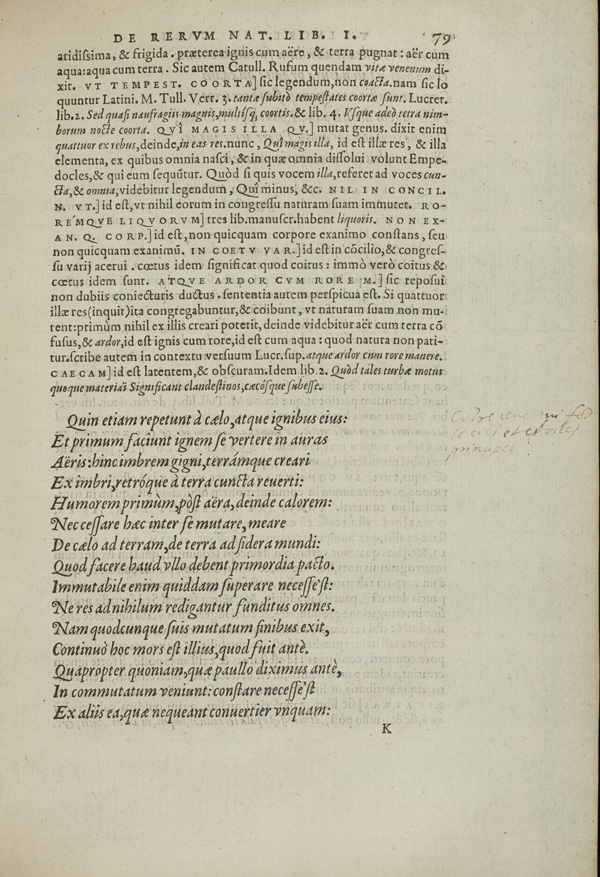 DE RERVM NAT. LIB. I. 79
aridissima, & frigida. præterea ignis cum aëre, & terra pugnat: aër cum
aqua: aqua cum terra. Sic autem Catull. Rufum quendam vitæ venenum di-
xit. VT TEMPEST. COORTA] sic legendum, non coacta. nam sic lo
quuntur Latini. M. Tull. Verr. 3. tantæ subitò tempestates coortæ sunt. Lucret.
lib. 2. Sed quasi naufragiis magnis, multisq́; coortis. & lib. 4. Vsque adeò tetra nim-
borum nocte coorta. QVÎ MAGIS ILLA QV.] mutat genus. dixit enim
quattuor ex rebus, deinde, in eas res. nunc, Quî magis illa, id est illæ res, & illa
elementa, ex quibus omnia nasci, & in quæ omnia dissolui volunt Empe-
docles, & qui eum sequũtur. Quòd si quis vocem illa, referet ad voces cun-
cta, & omnia, videbitur legendum, Quî minus, &c. NIL IN CONCIL.
N. VT.] id est, vt nihil eorum in congressu naturam suam immutet. RO-
REMQVE LIQVOREM] tres lib. manuscr. habent liquoris. NON EX-
AN. Q. CORP.] id est, non quicquam corpore exanimo constans, seu
non quicquam exanimũ. IN COETV VAR.] id est in cõcilio, & congres-
su varij acerui. cœtus idem significat quod coitus: immò verò coitus &
cœtus idem sunt. ATQVE ARDOR CVM RORE M.] sic reposui
non dubiis coniecturis ductus. sententia autem perspicua est. Si quattuor
illæ res (inquit) ita congregabuntur, & coibunt, vt naturam suam non mu-
tent: primùm nihil ex illis creari poterit, deinde videbitur aër cum terra cõ
fusus, & ardor, id est ignis cum rore, id est cum aqua: quod natura non pati-
tur. scribe autem in contextu versuum Lucr. sup. atque ardor cum rore manere.
CAECAM] id est latentem, & obscuram. Idem lib. 2. Quòd tales turbæ motus
quoque materiai Significant clandestinos, cæcósque subesse.
Quin etiam repetunt à cælo, atque ignibus eius:
Et primum faciunt ignem se vertere in auras
Aëris: hinc imbrem gigni, terrámque creari
Ex imbri, retróque à terra cuncta reuerti:
Humorem primùm, pòst aëra, deinde calorem:
Nec cessare hæc inter se mutare, meare
De cælo ad terram, de terra ad sidera mundi:
Quod facere haud vllo debent primordia pacto.
Immutabile enim quiddam superare necesse'st:
Ne res ad nihilum redigantur funditus omnes.
Nam quodcunque suis mutatum finibus exit,
Continuò hoc mors est illius, quod fuit antè.
Quapropter quoniam, quæ paullo diximus antè,
In commutatum veniunt: constare necesse'st
Ex aliis ea, quæ nequeant conuertier vnquam:
K